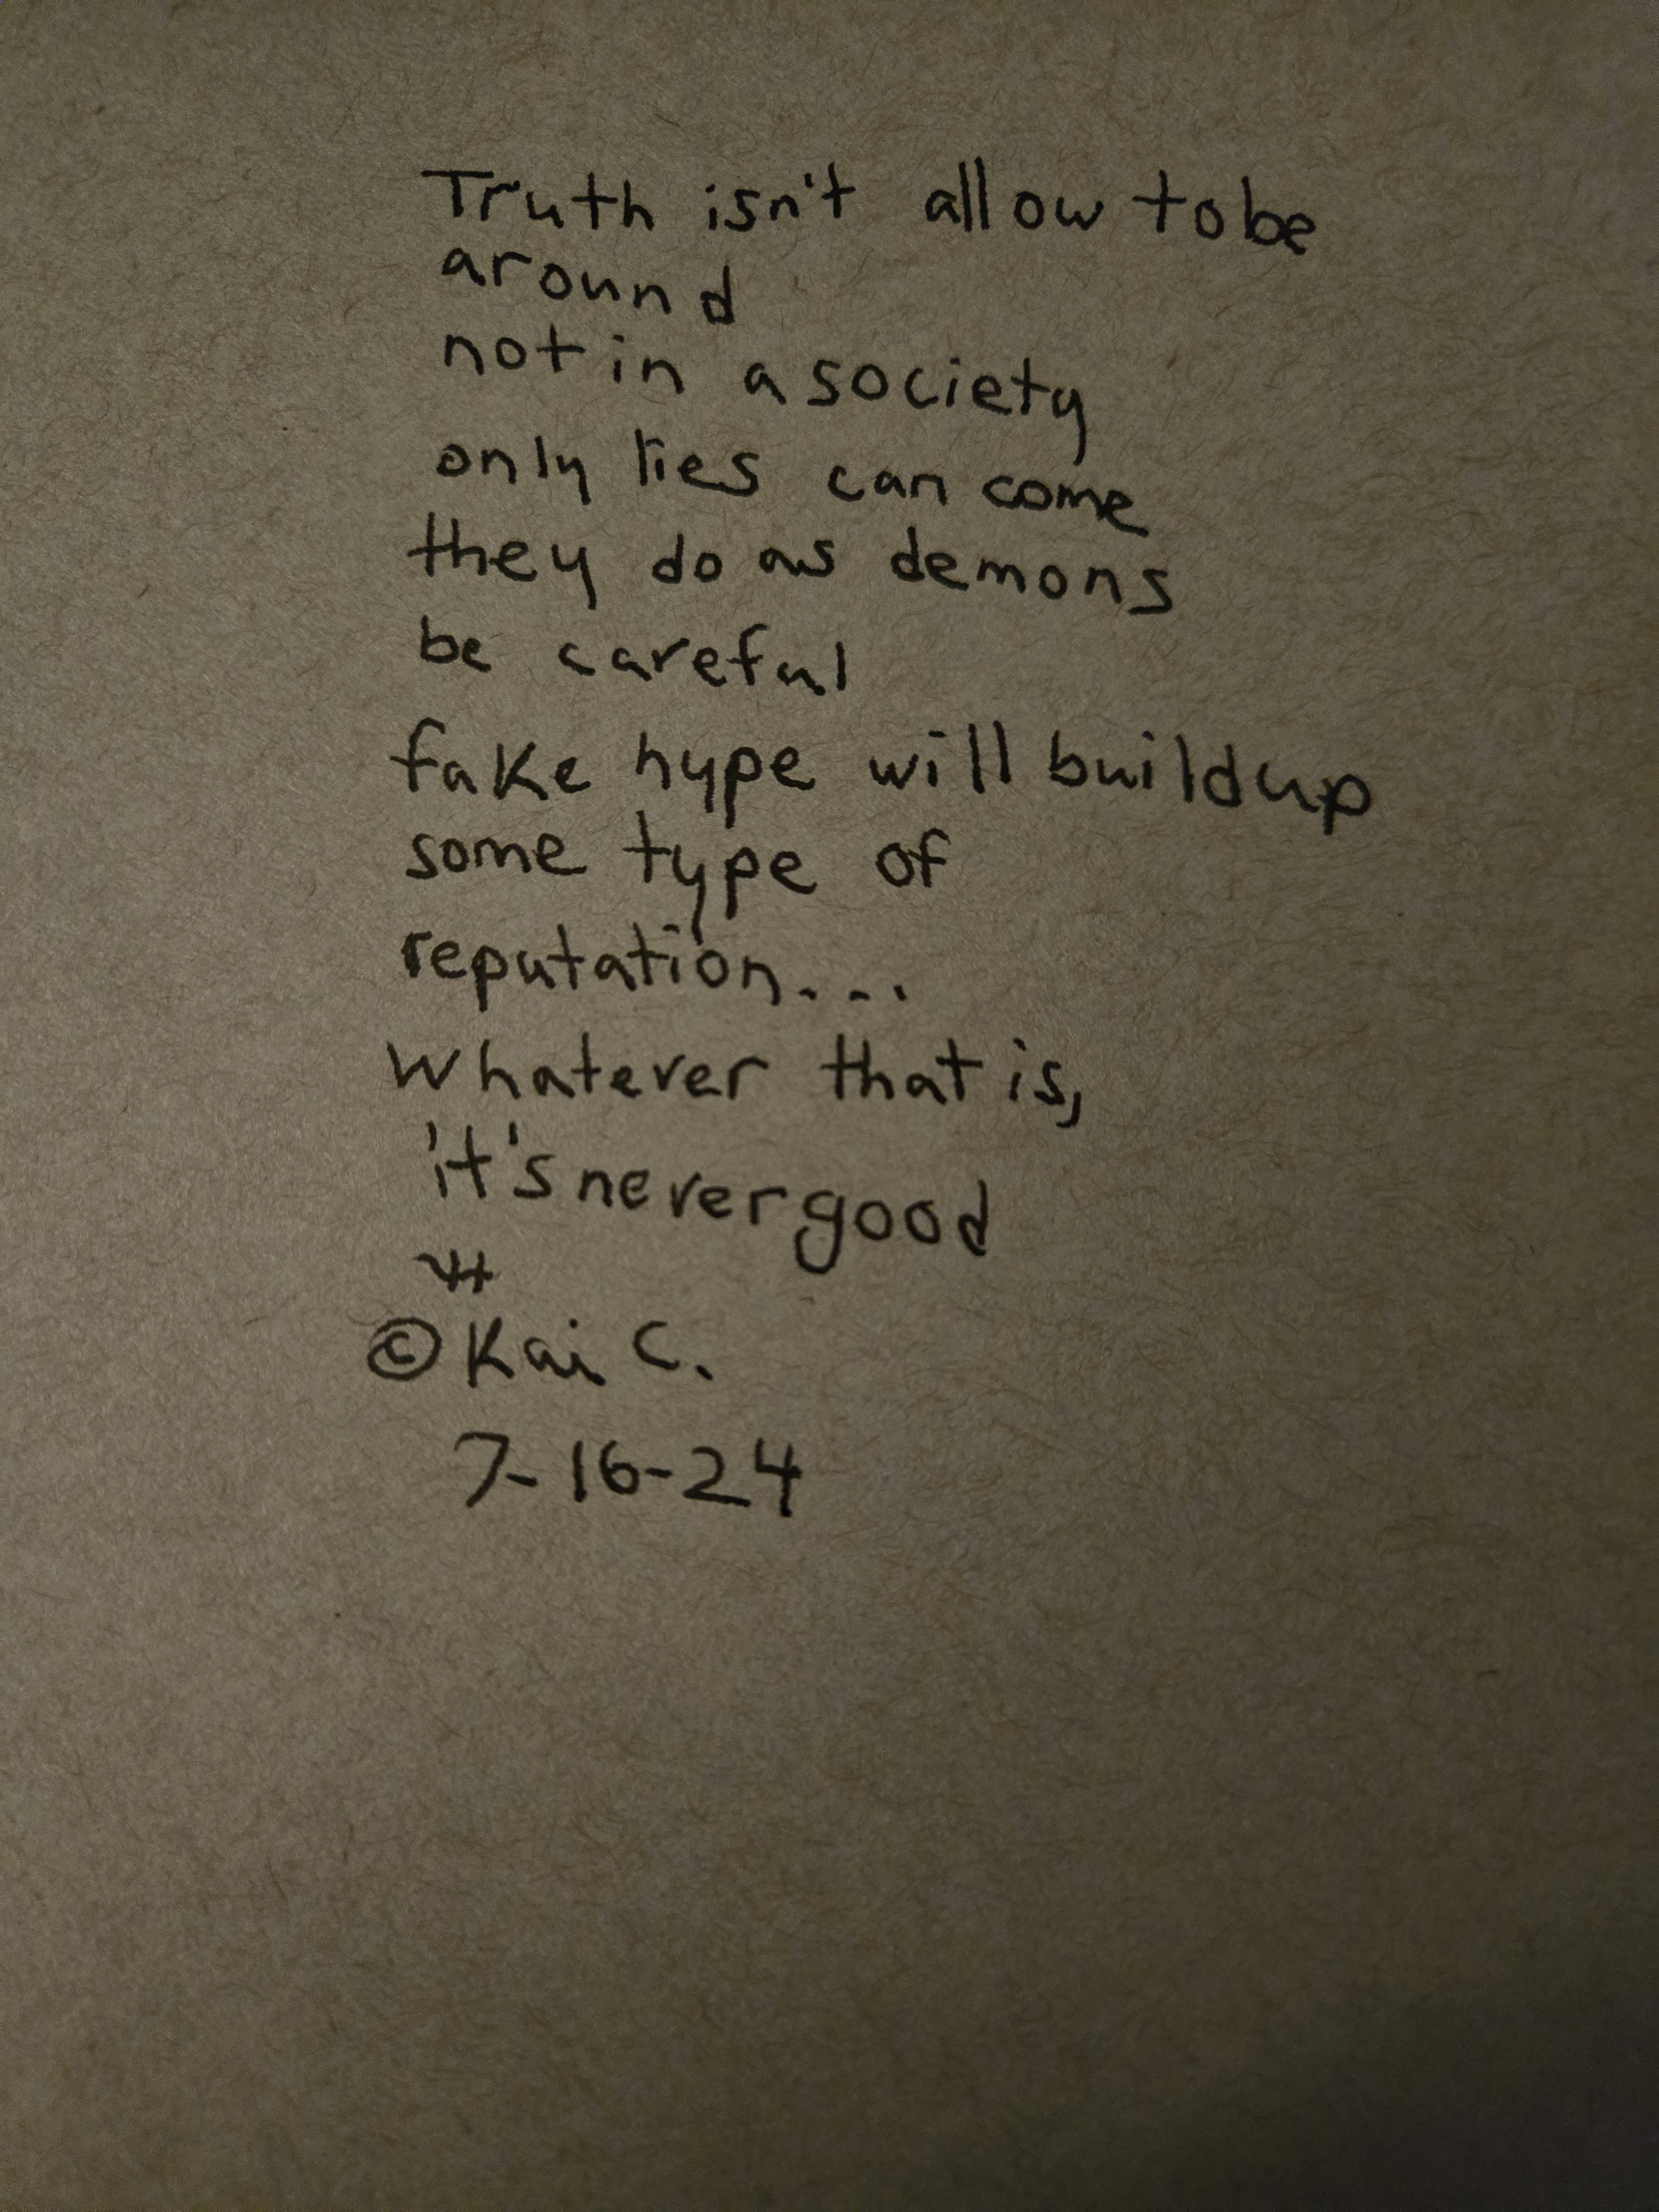 Truth isn't allow to be
around
not in a society
only lies can come
they do as demons
be careful
fake hype will build up
some type of
reputation...
Whatever that is,
it's never good
©Kai C.
7-16-24